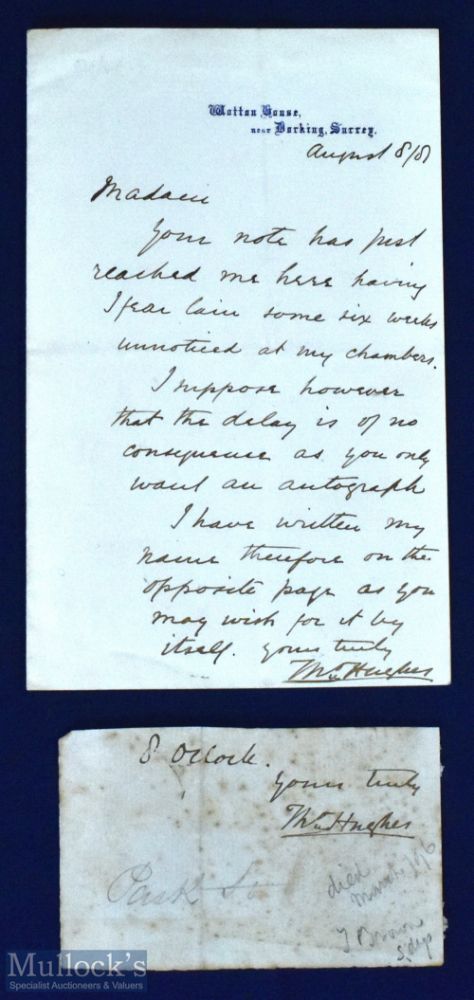 Wotton House,
near Dorking, Surrey.
August 8/81
Madam
Your note has just
reached me here having
I fear lain some six weeks
unnoticed at my chambers.
I suppose however
that the delay is of no
consequence as you only
want an autograph
I have written my
name therefore on the
opposite page as you
may wish for it by
itself. yours truly
Thos Hughes
8 OClock.
yours truly
Thos Hughes
died
March
T Brown
S. days
Mullock's
Specialist Auctioneers & Valuers